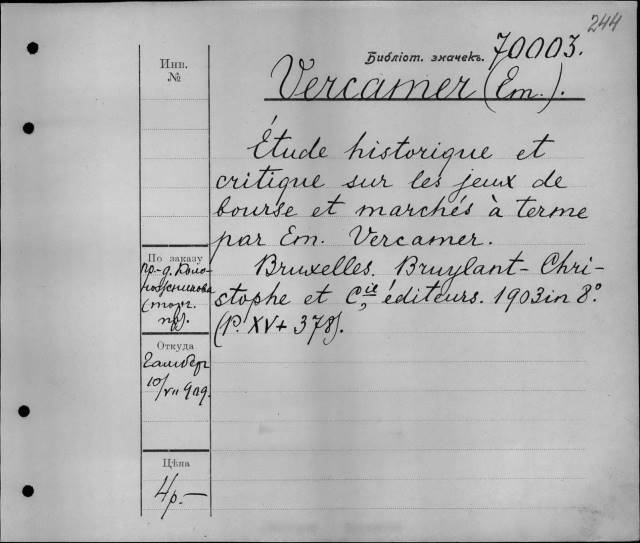 244
Библіот. значекъ. 70003.
Vercamer (Em.).
Étude historique et
critique sur les jeux de
bourse et marchés à terme
par Em. Vercamer.
Bruxelles. Bruylant-Chri-
stophe et Cie, éditeurs. 1903 in 8.º
(P. XV + 378).
Инв.
№
По заказу
пр-д.
(торг.
пр).
Откуда
10/VII 909.
Цѣна
4р.—